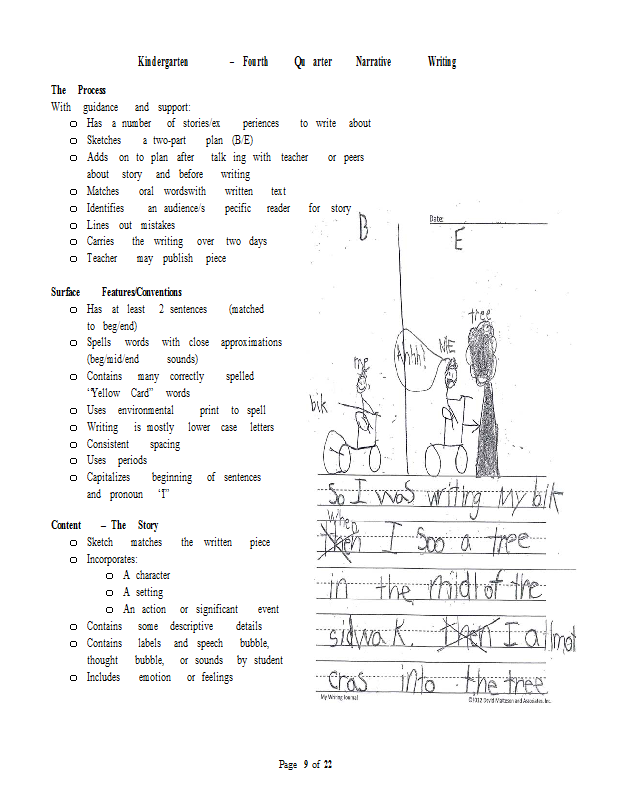 Kindergarten – Fourth Quarter Narrative Writing
The Process
With guidance and support:
Has a number of stories/experiences to write about
Sketches a two-part plan (B/E)
Adds on to plan after talking with teacher or peers
about story and before writing
Matches oral wordswith written text
Identifies an audience/specific reader for story
Lines out mistakes
Carries the writing over two days
Teacher may publish piece
Surface Features/Conventions
Has at least 2 sentences (matched
to beg/end)
Spells words with close approximations
(beg/mid/end sounds)
Contains many correctly spelled
“Yellow Card” words
Uses environmental print to spell
Writing is mostly lower case letters
Consistent spacing
Uses periods
Capitalizes beginning of sentences
and pronoun “I”
Content – The Story
Sketch matches the written piece
Incorporates:
A character
A setting
An action or significant event
Contains some descriptive details
Contains labels and speech bubble,
thought bubble, or sounds by student
Includes emotion or feelings
Date:
B
E
tree
Ahhh!
ME
me
bik
So I was writing My bik
When
Then I Soo a tree
in the midl of the
sidwak. Then I allmot
cras into the tree
My Writing Journal
©2012 David Matteson and Associates, Inc.
Page 9 of 22